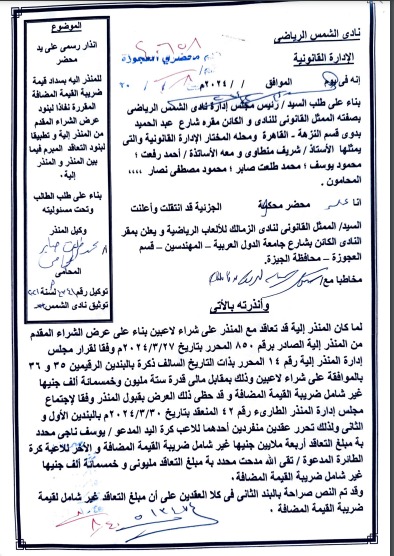 نادى الشمس الرياضى
الإدارة القانونية
إنه فى يوم الموافق / /٢٠٢٤م
بناء على طلب السيد / رئيس مجلس إدارة نادى الشمس الرياضى
بصفته الممثل القانونى للنادى و الكائن مقره شارع عبد الحميد
بدوى قسم النزهة - القاهرة ومحله المختار الإدارة القانونية والتى
يمثلها الأستاذ / شريف منطاوى و معه الأساتذة / أحمد رفعت ؛
محمود يوسف ؛ محمد طلعت صابر ؛ محمود مصطفى نصار ،،،،
المحامون .
انا محضر محكمة الجزنية قد انتقلت وأعلنت
السيد/ الممثل القانونى لنادى الزمالك للألعاب الرياضية و يعلن بمقر
النادى الكائن بشارع جامعة الدول العربية - المهندسين - قسم
العجوزة - محافظة الجيزة.
مخاطبا مع
وأنذرته بالأتى
لما كان المنذر إلية قد تعاقد مع المنذر على شراء لاعبين بناء على عرض الشراء المقدم
من المنذر إلية الصادر برقم ٨٥٠ المحرر بتاريخ ٢٠٢٤/٣/٢٧م وفقا لقرار مجلس
إدارة المنذر إلية رقم ١٤ المحرر بذات التاريخ السالف ذكرة بالبندين الرقيمين ٣٥ و ٣٦
بالموافقة على شراء لاعبين وذلك بمقابل مالى قدرة ستة مليون وخمسمائة ألف جنيها
غير شامل ضريبة القيمة المضافة و قد حظى ذلك العرض بقبول المنذر وفقا لإجتماع
مجلس إدارة المنذر الطارىء رقم ٤٢ المنعقد بتاريخ ٢٠٢٤/٣/٣٠م بالبندين الأول و
الثانى وذلك تحرر عقدين منفردين أحدهما للاعب كرة اليد المدعو / يوسف ناجى محدد
بة مبلغ التعاقد أربعة ملايين جنيها غير شامل ضريبة القيمة المضافة و الأخر للاعبة كرة
الطائرة المدعوة / تقى الله مدحت محدد بة مبلغ التعاقد مليونى و خمسمائة ألف جنيها
غير شامل ضريبة القيمة المضافة .
وقد تم النص صراحة بالبند الثانى فى كلا العقدين على أن مبلغ التعاقد غير شامل لقيمة
ضريبة القيمة المضافة .
الموضوع
انذار رسمى على يد
محضر
للمنذر اليه بسداد قيمة
ضريبة القيمة المضافة
المقررة نفاذا لبنود
عرض الشراء المقدم
من المنذر إلية و تطبيقا
لبنود التعاقد المبرم فيما
بين المنذر و المنذر
إلية .
بناء على طلب الطالب
وتحت مسئوليته
وكيل المنذر
المحامى
توثيق نادى الشمس